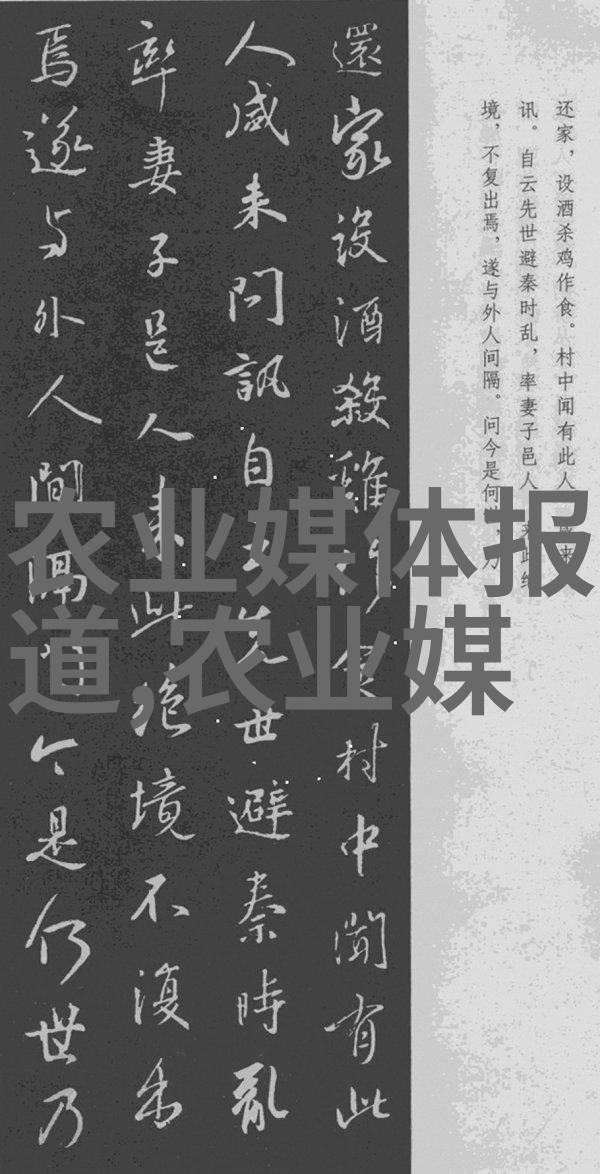 还家，设酒杀鸡作食。村中闻有此人
讯。自云先世避秦时乱，率妻子邑人来此绝
境，不复出焉，遂与外人间隔。问今是何
還家設酒殺雞作食村中聞有此
人咸来問訊自云先世避秦時亂
率妻子邑人来此絶境不復出
焉遂与外人間隔問今是何世乃
农业媒体报
道,农业媒